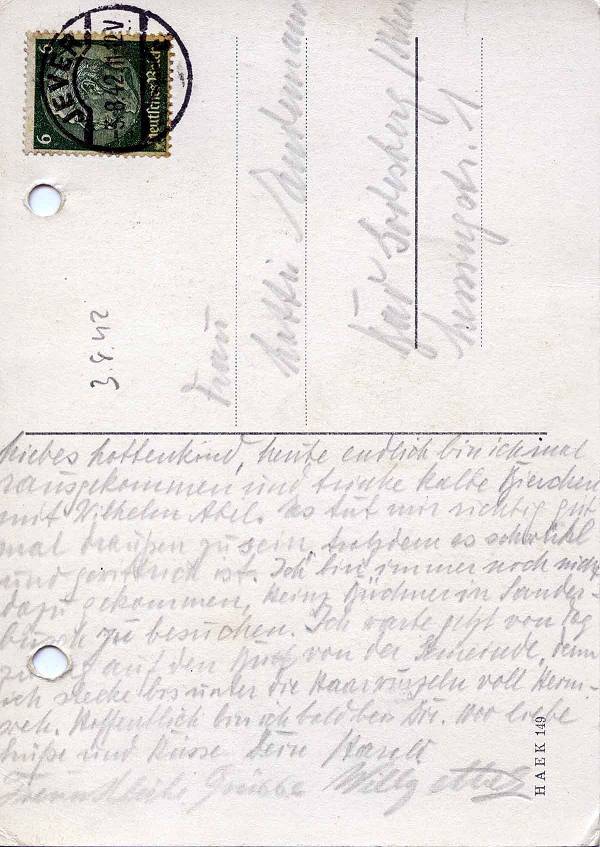 JEVER
3.8.42
Deutsches Reich
6
3.8.42
Frau
Lotte
Bad Godesberg / Rhein
Lessingstr. 1
Liebes Lottenkind, heute endlich bin ich mal
rausgekommen und trinke kalte Bierchen
mit Wilhelm Abel. Es tut mir richtig gut
mal draußen zu sein, trotzdem es schwühl
und gewittrich ist. Ich bin immer noch nicht
dazu gekommen, Heinz Büchner in Sander-
busch zu besuchen. Ich warte jetzt von Tag
zu Tag auf den von der Gemeinde, denn
ich stecke bis unter die Haarwurzeln voll Heim-
weh. Hoffentlich bin ich bald bei Dir. 1000 liebe
Grüße und Küsse Dein
Freundliche Grüsse Willy Abel
HAEK 149